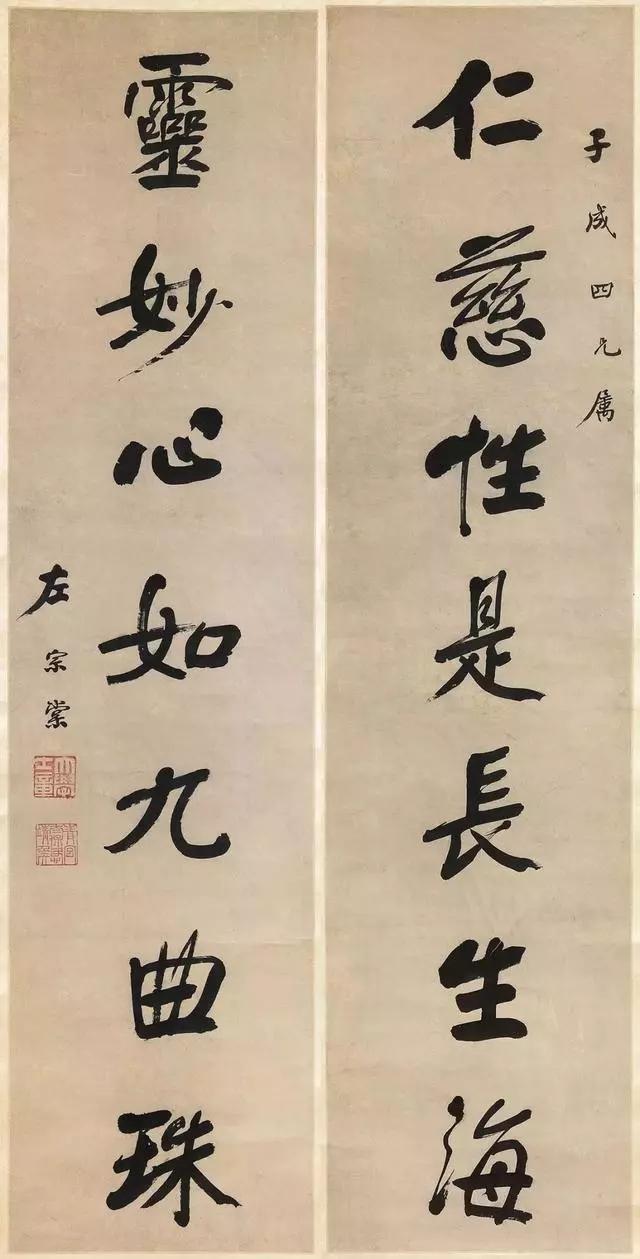 子成四兄属
仁慈性是長生海
靈妙心如九曲珠
左宗棠